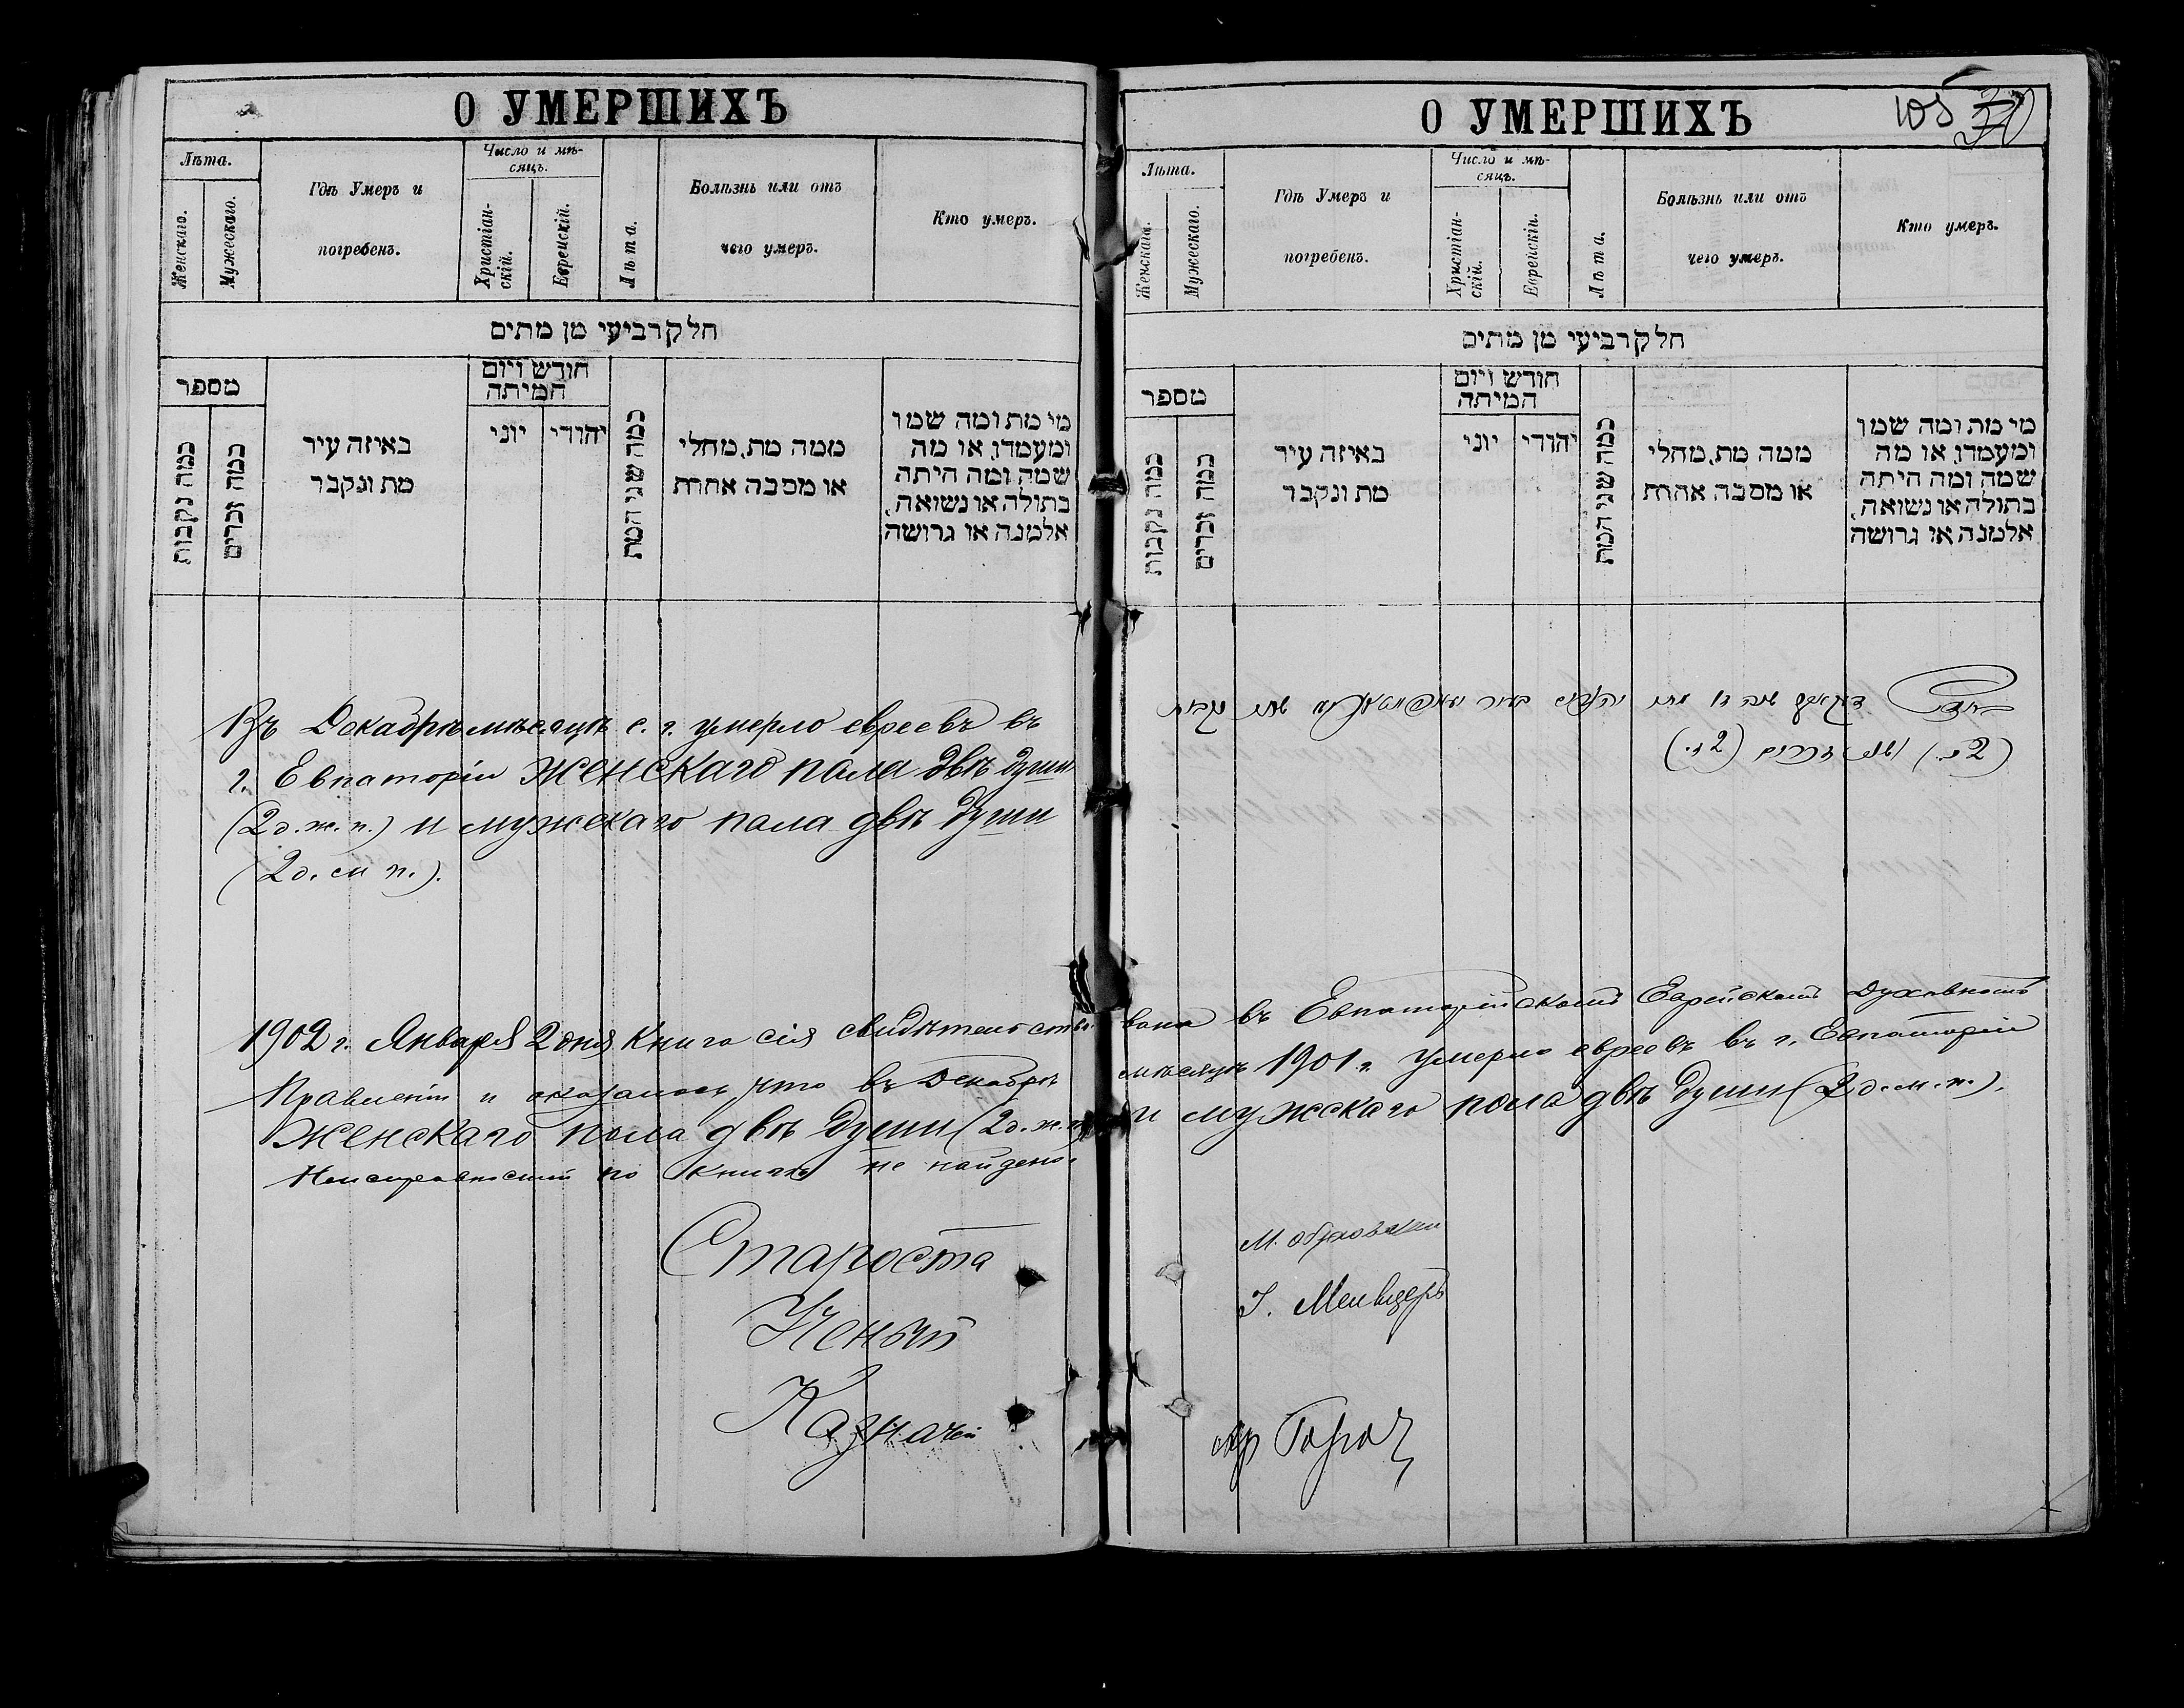 О УМЕРШИХЪ
Лѣта.
Женскаго.
Мужескаго.
Гдѣ Умеръ и
погребенъ.
Число и мѣ-
сяцъ.
Христіан-
скій.
Еврейскій.
Лѣта.
Болѣзнь или отъ
чего умеръ.
Кто умеръ.
חלק רביעי מן מתים
מספר
כמה נקבות
כמה זכרים
באיזה עיר
מת ונקבר
חודש ויום
המיתה
יוני
יהודי
כמה שני המת
ממה מת, מחלי
או מסבה אחרת
מי מת ומה שמו
ומעמדו, או מה
שמה ומה היתה
בתולה או נשואה,
אלמנה או גרושה
Въ Декабрѣ мѣсяцѣ с. г. умерло евреевъ въ
г. Евпаторіи женскаго пола двѣ души
(2 д. ж. п.) и мужскаго пола двѣ души
(2 д. м п.).
1902 г. Января 2 дня Книга сія свидѣтельство
Правленіи и оказалось, что въ Декабрѣ
женскаго пола двѣ души (2 д. ж. п.)
Неисправностей по книгѣ не найдено.
Староста
Ученый
Казначей
О УМЕРШИХЪ
105
Лѣта.
Женскаго.
Мужескаго.
Гдѣ Умеръ и
погребенъ.
Число и мѣ-
сяцъ.
Христіан-
скій.
Еврейскій.
Лѣта.
Болѣзнь или отъ
чего умеръ.
Кто умеръ.
חלק רביעי מן מתים
מספר
כמה נקבות
כמה זכרים
באיזה עיר
מת ונקבר
חודש ויום
המיתה
יוני
יהודי
כמה שני המת
ממה מת, מחלי
או מסבה אחרת
מי מת ומה שמו
ומעמדו, או מה
שמה ומה היתה
בתולה או נשואה,
אלמנה או גרושה
(2 נ.) ושני זכרים (2 ז.)
вана въ Евпаторійскомъ Еврейскомъ Духовномъ
мѣсяцѣ 1901 г. умерло евреевъ въ г. Евпаторіи
и мужскаго пола двѣ души (2 д. м. п.).